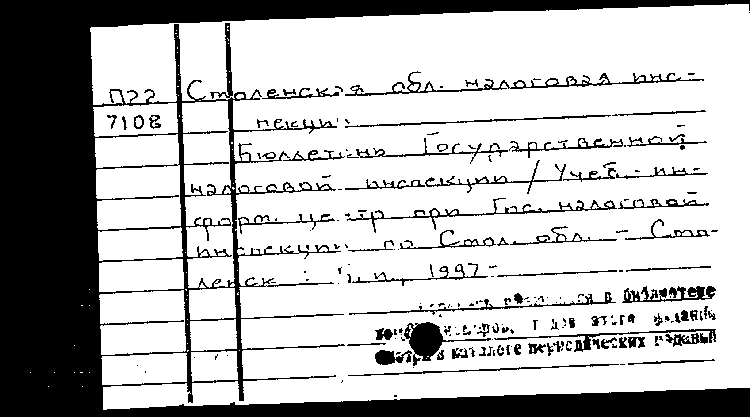 П22 Смоленская обл. налоговая инс-
7108 пекция.
Бюллетень Государственной
налоговой инспекции / Учеб.-ин-
форм. центр при Гос. налоговой
инспекции по Смол. обл. - Смо-
ленск : 1997-
в библиотеке
этого издания
смотри в каталоге периодических изданий